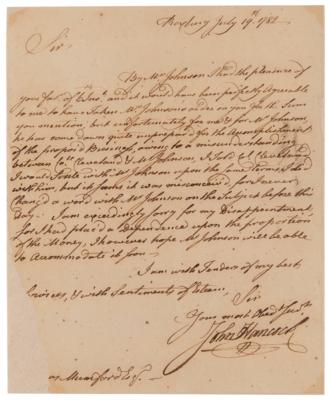 Roxbury July 19th 1782
Sir
By Mr Johnson I had the pleasure of
your fav. of and it would have been perfectly Agreeable
to me to have taken Mr Johnson's order on you for the Sum
you mention, but unfortunately for me & for Mr Johnson,
he has come down quite unprepar'd for the Accomplishment
of the propos'd Business, owing to a misunderstanding
between Colo. Cleveland & Mr Johnson, I told Colo. Cleveland
I would Settle with Mr Johnson upon the same Terms I did
with him, but it seems it was misconceiv'd, for I never
chang'd a word with Mr Johnson on the Subject before this
Day. I am exceedingly sorry for my Disappointment,
for I had plac'd a Dependence upon the proportion
of the Money, I however hope Mr Johnson will be able
to Accommodate it soon
I am with Tenders of my best
Services, & with Sentiments of Esteem,
Sir
Your most Obedt Servt
John Hancock
Mumford Esqr.